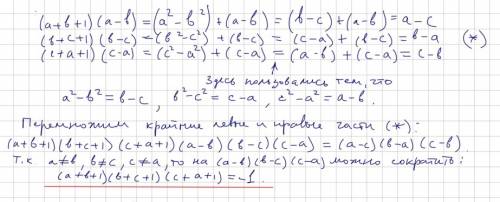 (a+b+1)(a-b) = (a²-b²)+(a-b) = (b-c)+(a-b) = a-c
(b+c+1)(b-c) = (b²-c²)+(b-c) = (c-a)+(b-c) = b-a (*)
(c+a+1)(c-a) = (c²-a²)+(c-a) = (a-b)+(c-a) = c-b
Здесь пользовались тем, что
a²-b²=b-c, b²-c²=c-a, c²-a²=a-b.
Перемножим крайние левые и правые части (*):
(a+b+1)(b+c+1)(c+a+1)(a-b)(b-c)(c-a) = (a-c)(b-a)(c-b).
Т.к a≠b, b≠c, c≠a, то на (a-b)(b-c)(c-a) можно сократить:
(a+b+1)(b+c+1)(c+a+1)=-1.